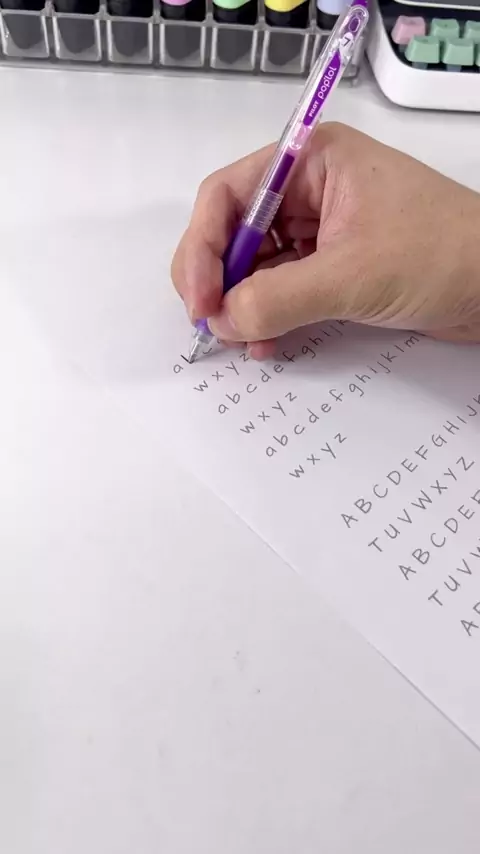 PILOT poplol
a
w x y z
a b c d e f g h i j k
w x y z
a b c d e f g h i j k l m
w x y z
A B C D E F G H I J K
T U V W X Y Z
A B C D E F
T U V W
A B